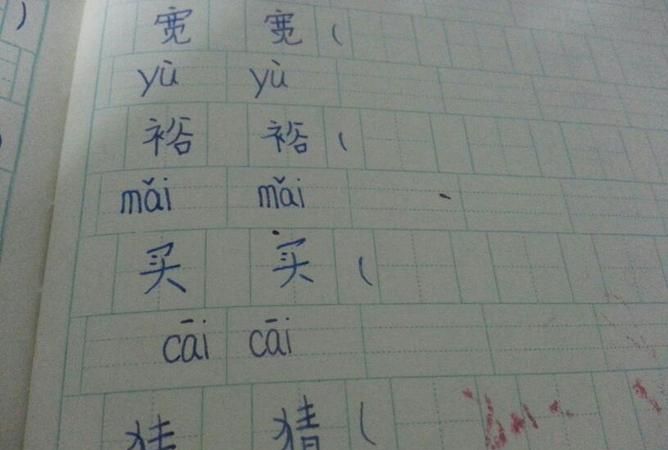 宽 宽 (
yù yù
裕 裕 (
mǎi mǎi
买 买 (
cāi cāi
猜 猜 (